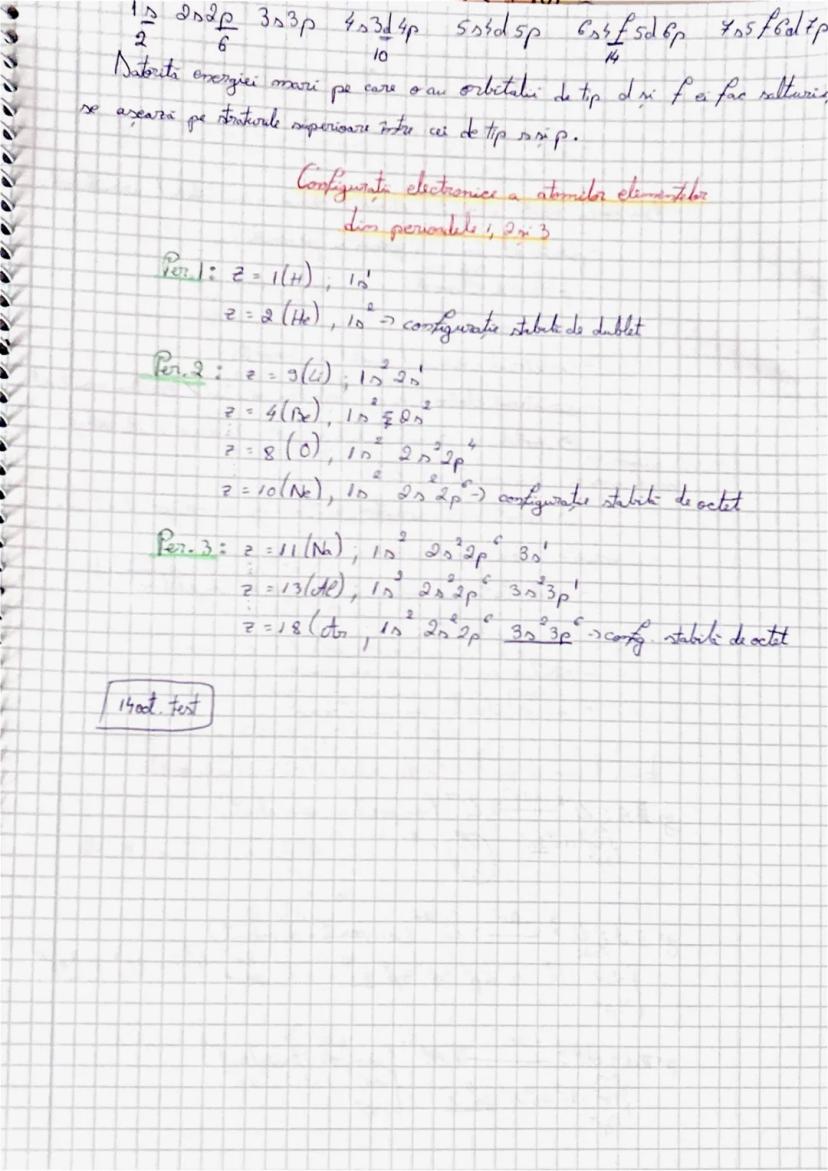 1s 2s2p 3s3p 4s3d4p 5s4d5p 6s4f5d6p 7s5f6d7p
2 6 10 14
Datorită energiei mari pe care o au orbitalii de tip d și f ei fac salturi,
se așează pe straturile superioare între cei de tip s și p.
Configurații electronice a atomilor elementelor
din perioadele 1, 2 și 3
Per. 1: z = 1(H) ; 1s¹
z = 2 (He), 1s² → configurație stabilă de dublet
Per. 2: z = 3(Li) ; 1s² 2s¹
z = 4(Be), 1s² 2s²
z = 8 (O), 1s² 2s²2p⁴
z = 10(Ne), 1s² 2s²2p⁶ → configurație stabilă de octet
Per. 3: z = 11(Na) ; 1s² 2s²2p⁶ 3s¹
z = 13(Al), 1s² 2s²2p⁶ 3s²3p¹
z = 18(Ar , 1s² 2s²2p⁶ 3s²3p⁶ → config. stabilă de octet
14 oct. test